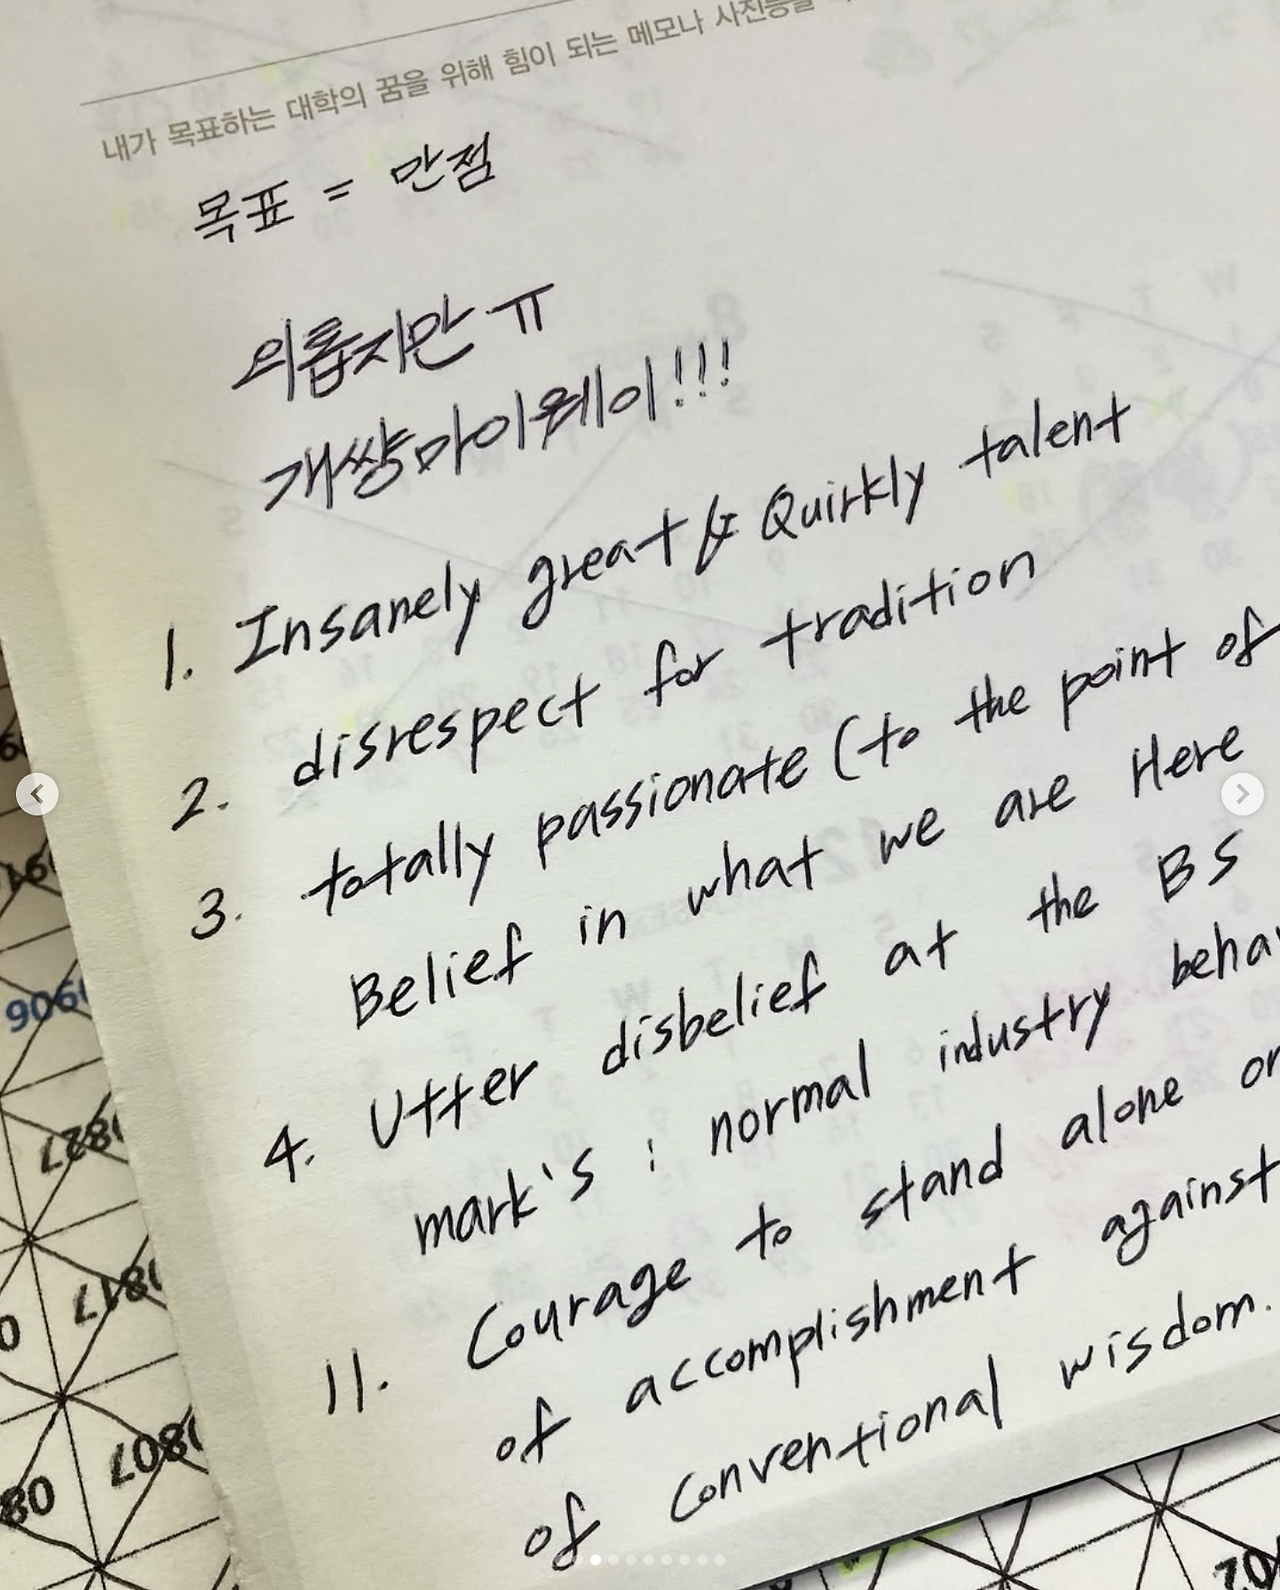 내가 목표하는 대학의 꿈을 위해 힘이 되는 메모나 사진등을
목표 = 만점
외롭지만 ㅠ
개썅마이웨이!!!
1. Insanely great & Quirkly talent
2. disrespect for tradition
3. totally passionate (to the point of
Belief in what we are Here
4. Utter disbelief at the BS
mark's : normal industry
11. Courage to stand alone
of accomplishment against
of conventional wisdom.
9060
1827
1817
1807
80